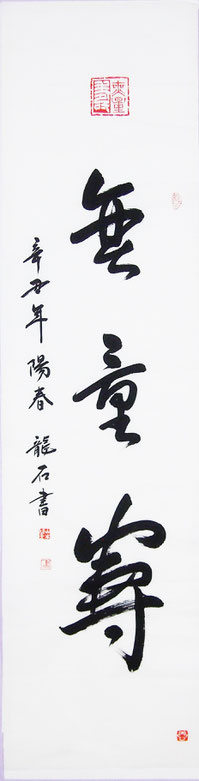 無量壽
辛丑年陽春 龍石書